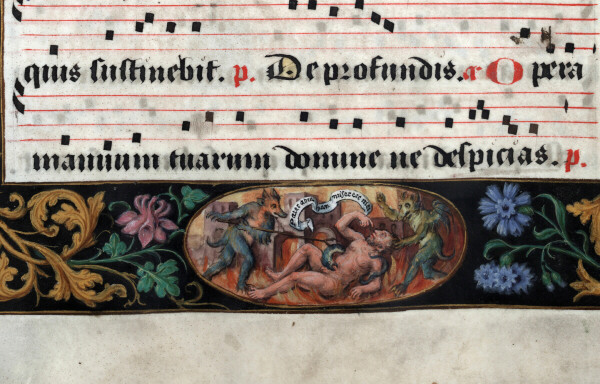 quis sustinebit. p. De profundis. a Opera
manuum tuarum domine ne despicias. p.
miserere mei